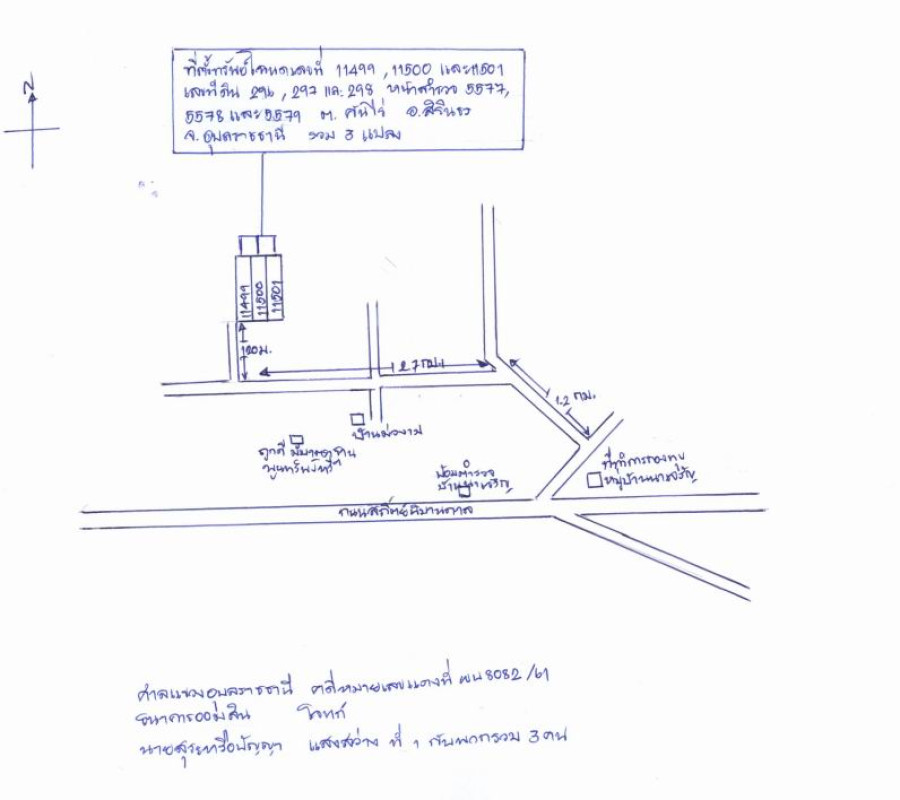 N
ที่ตั้งทรัพย์โฉนดเลขที่ 11499, 11500 และ 11501
เลขที่ดิน 296, 297 และ 298 หน้าสำรวจ 5577,
5578 และ 5579 ต. คันไร่ อ.สิรินธร
จ.อุบลราชธานี รวม 3 แปลง
11499
11500
11501
120ม.
2.7 กม.
1.2 กม.
บ้านม่วงงาม
ป้อมตำรวจ
บ้านนาเจริญ
ที่ทำการกองทุน
หมู่บ้านนาเจริญ
ถนนสถิตย์นิมานกาล
ศาลแขวงอุบลราชธานี คดีหมายเลขแดงที่ ผบ 8082/61
ธนาคารออมสิน โจทก์
นายสุระหรือปัญญา แสงสว่าง ที่ 1 กับพวกรวม 3 คน